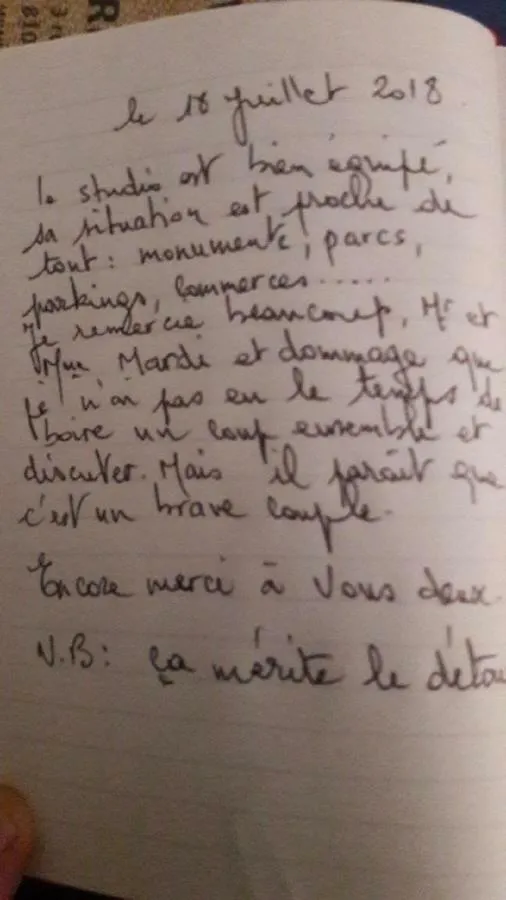 le 18 juillet 2018
le studio est bien équipé,
sa situation est proche de
tout : monuments, parcs,
parkings, commerces......
Je remercie beaucoup, Mr et
Mme Mardi et dommage que
je n'ai pas eu le temps de
boire un coup ensemble et
discuter. Mais il parait que
c'est un brave couple.
Encore merci à Vous deux.
N.B: ça mérite le détou